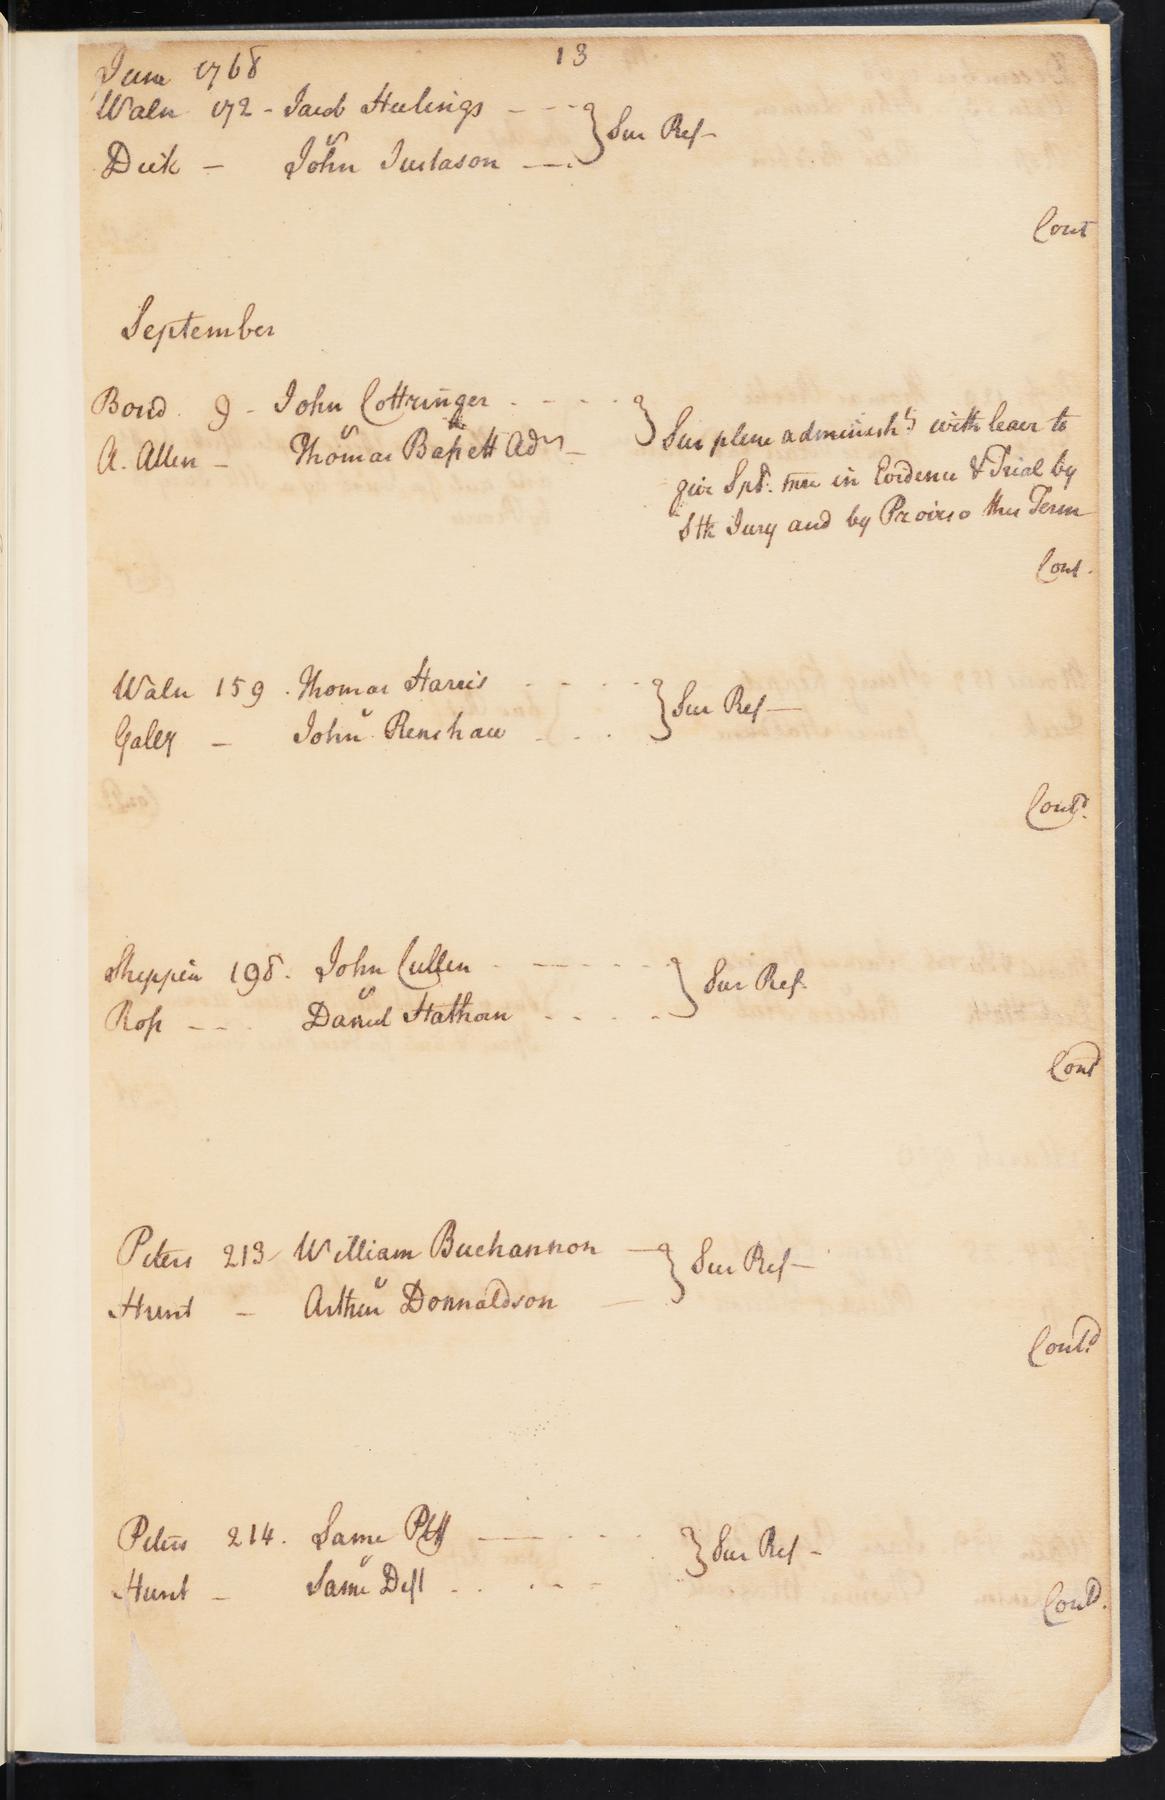 13
June 1768
Waln 172 - Jacob Heulings - - - } Sur Ref -
v
Dick - John Justason - - -
Cont
September
Bond 9 - John Cottringer - - - - }
v
A. Allen - Thomas Bassett Adr -
Sur plene administ with leave to
give Spl. in Evidence & Trial by
Stk Jury and by Proviso this Term
Cont.
Waln 159. Thomas Harris - - - - } Sur Ref -
v
Gally - John Renshaw - - -
Contd.
Sheppen 198. John Cullen - - - - } Sur Ref.
v
Ross - - - Daniel Stathan - - - -
Contd
Peters 213 - William Buchannon - } Sur Ref -
v
Hunt - Arthur Donnaldson -
Contd.
Peters 214. Same Plff - - - - } Sur Ref -
v
Hunt - Same Deft - - - -
Contd.